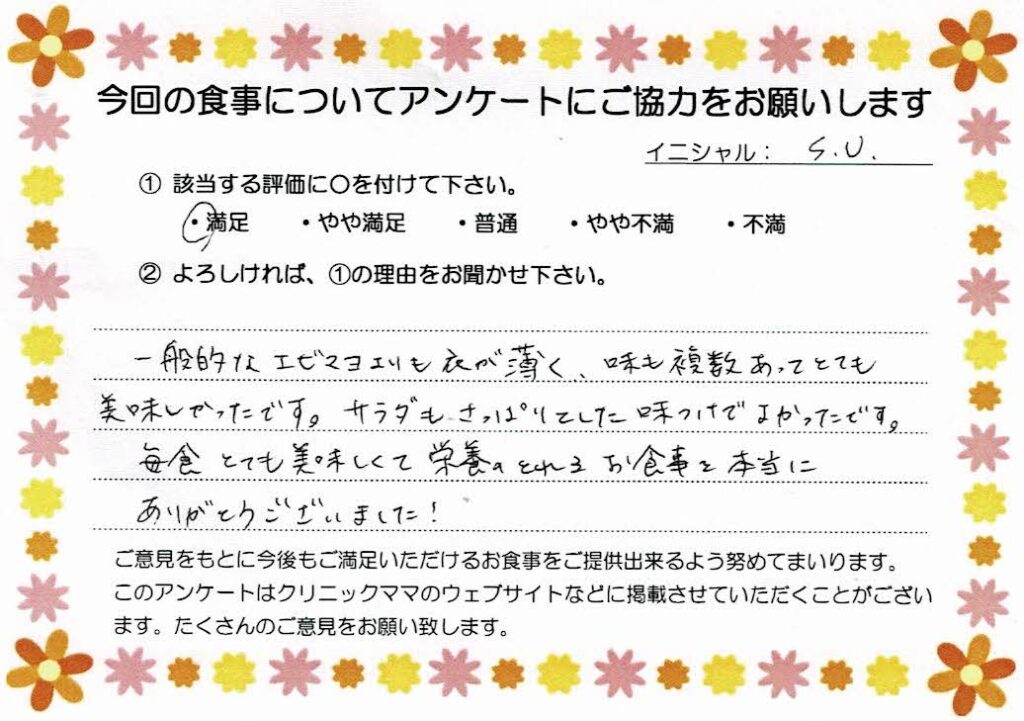 今回の食事についてアンケートにご協力をお願いします
イニシャル： S.U.
① 該当する評価に〇を付けて下さい。
・満足 ・やや満足 ・普通 ・やや不満 ・不満
② よろしければ、①の理由をお聞かせ下さい。
一般的なエビマヨよりも衣が薄く、味も複数あってとても
美味しかったです。サラダもさっぱりとした味つけでよかったです。
毎食とても美味しくて栄養のとれるお食事を本当に
ありがとうございました！
ご意見をもとに今後もご満足いただけるお食事をご提供出来るよう努めてまいります。
このアンケートはクリニックママのウェブサイトなどに掲載させていただくことがござい
ます。たくさんのご意見をお願い致します。